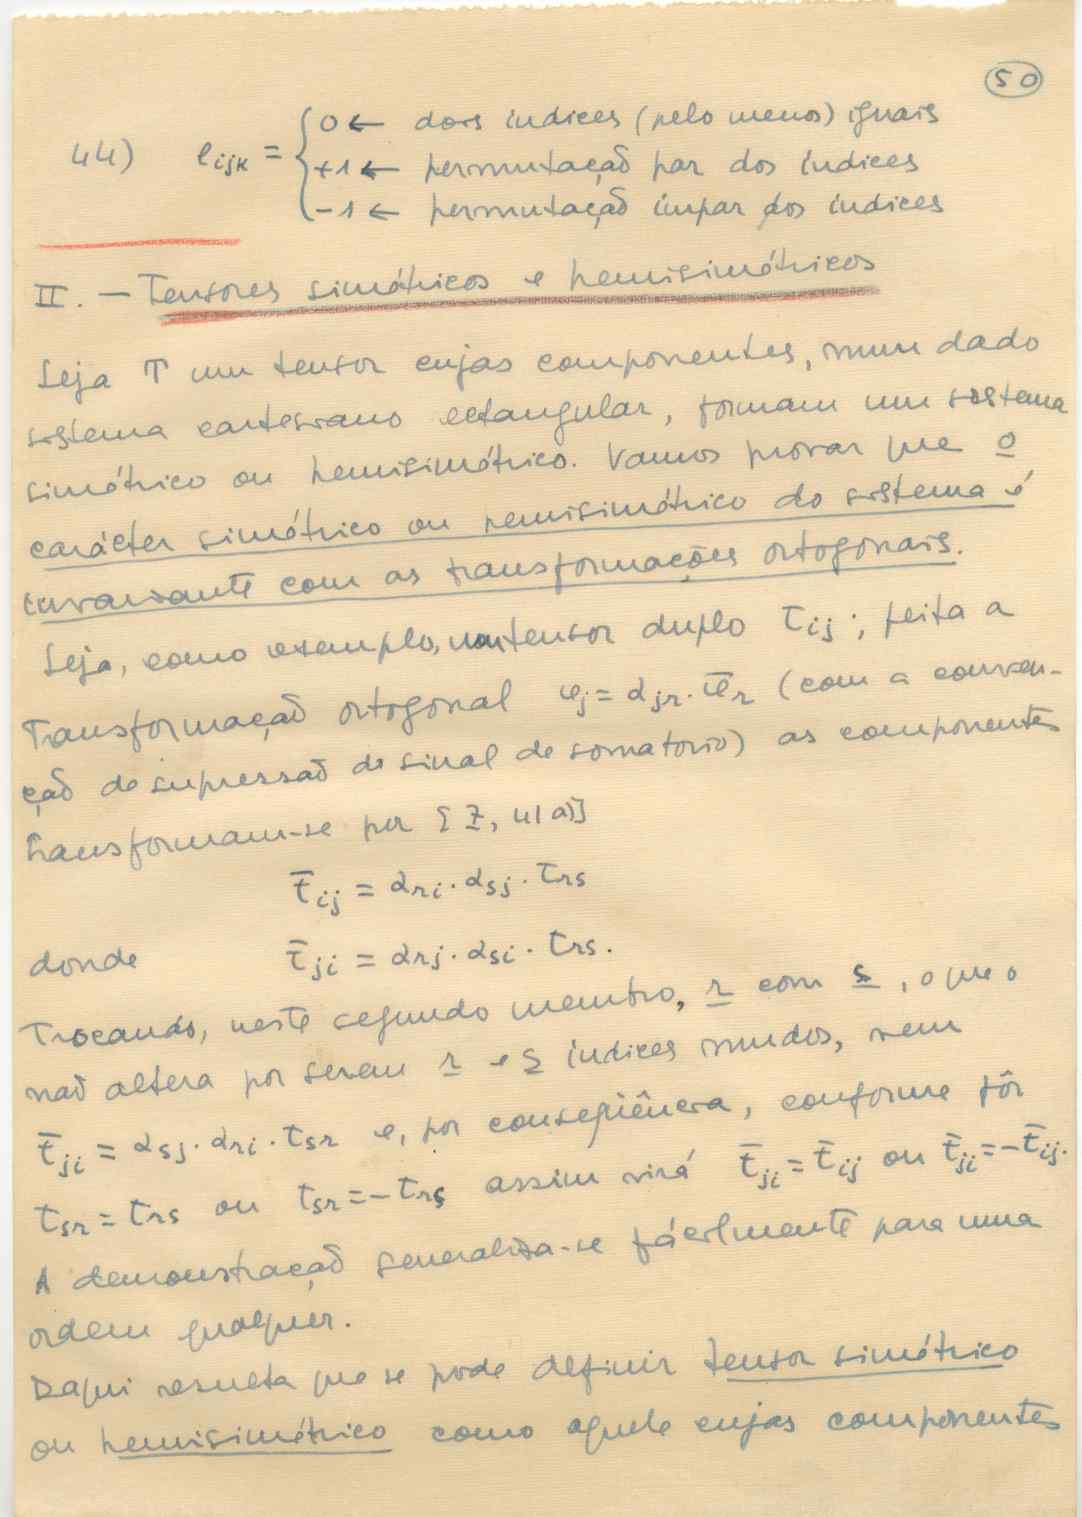 50
44) e_ijk = { 0 ← dois índices (pelo menos) iguais
+1 ← permutação par dos índices
-1 ← permutação ímpar dos índices
II. — Tensores simétricos e hemisimétricos
Seja T um tensor cujas componentes, num dado
sistema cartesiano rectangular, formam um sistema
simétrico ou hemisimétrico. Vamos provar que o
carácter simétrico ou hemisimétrico do sistema é
invariante com as transformações ortogonais.
Seja, como exemplo, um tensor duplo t_ij; feita a
transformação ortogonal e_j = α_jr · ē_r (com a conven-
ção de supressão de sinal de somatório) as componentes
transformam-se por [7, 41 a)]
t̄_ij = α_ri · α_sj · t_rs
donde t̄_ji = α_rj · α_si · t_rs.
Trocando, neste segundo membro, r com s, o que o
não altera por serem r e s índices mudos, vem
t̄_ji = α_sj · α_ri · t_sr e, por conseqüência, conforme fôr
t_sr = t_rs ou t_sr = -t_rs assim virá t̄_ji = t̄_ij ou t̄_ji = -t̄_ij.
A demonstração generaliza-se fácilmente para uma
ordem qualquer.
Daqui resulta que se pode definir tensor simétrico
ou hemisimétrico como aquele cujas componentes